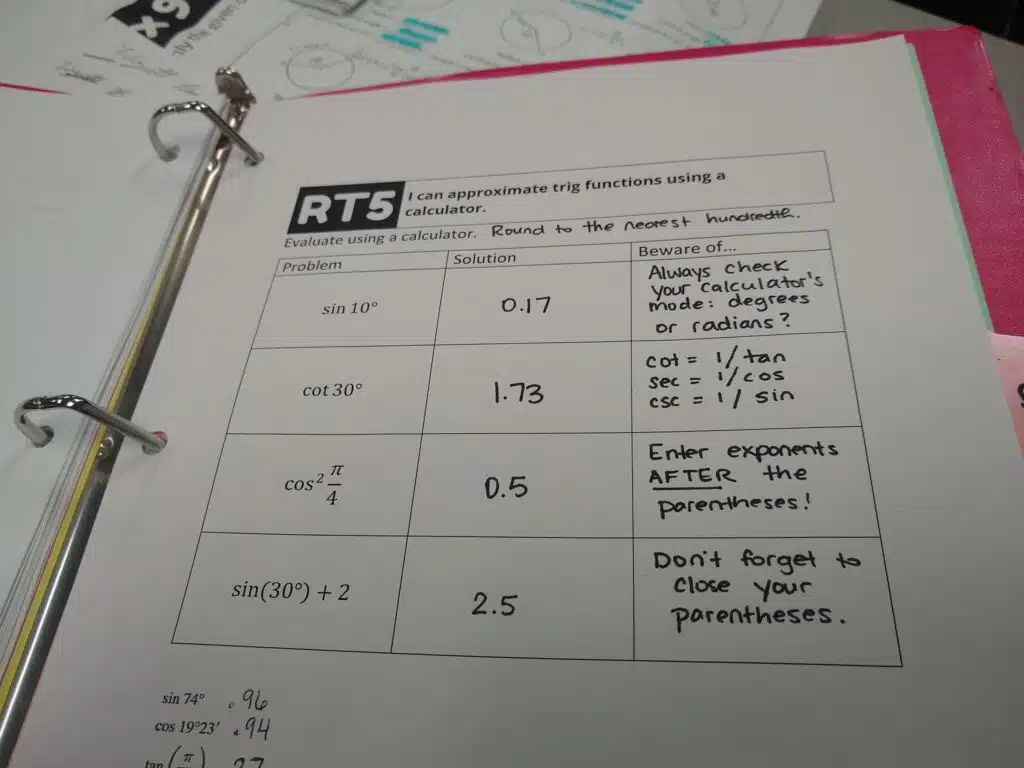 x 9
RT5
I can approximate trig functions using a
calculator.
Evaluate using a calculator. Round to the nearest hundredth.
Problem
Solution
Beware of...
sin 10°
0.17
Always check
your calculator's
mode: degrees
or radians?
cot 30°
1.73
cot = 1/tan
sec = 1/cos
csc = 1/ sin
cos² π/4
0.5
Enter exponents
AFTER the
parentheses!
sin(30°) + 2
2.5
Don't forget to
close your
parentheses.
sin 74° .96
cos 19°23' .94
tan (π